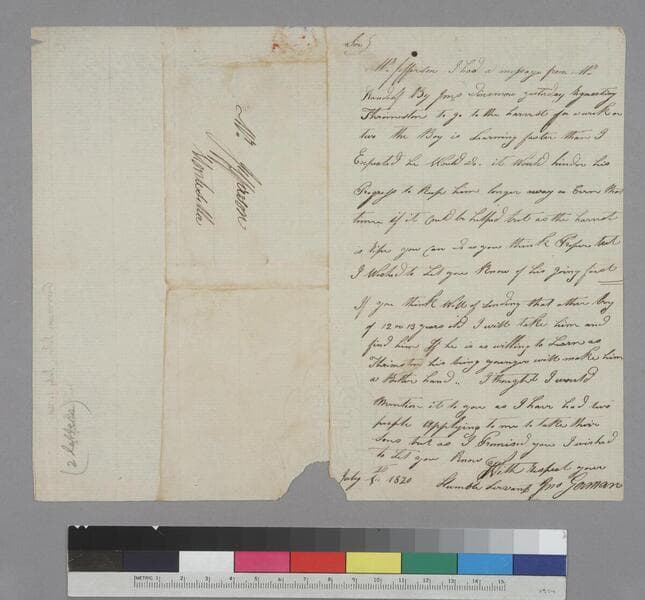 Sir)
Mr Jefferson I had a message from Mr
Randolf By Jms yesterday Requesting
Thrimston to go to the harvest for a week or
two the Boy is Learning faster than I
Expected he Would do. it Would hinder his
Progress to Keep him longer away or Even that
time if it Could be helped but as the harvest
is Ripe you can do as you think Proper but
I Wished to Let you Know of his going first
If you think Well of Sending that other boy
of 12 or 13 years old I will take him and
find him If he is as willing to Learn as
Thrimston his being younger will make him
a Better hand .. I thought I would
Mention it to you as I have had two
people applying to me to take their
sons but as I Promised you I wished
to Let you Know
With respect your
Humble Servant Jno Gorman
July 1820
Mr Jefferson
Montecella
(2 letters)
METRIC 1 2 3 4 5 6 7 8 9 10 11 12 13 14 15